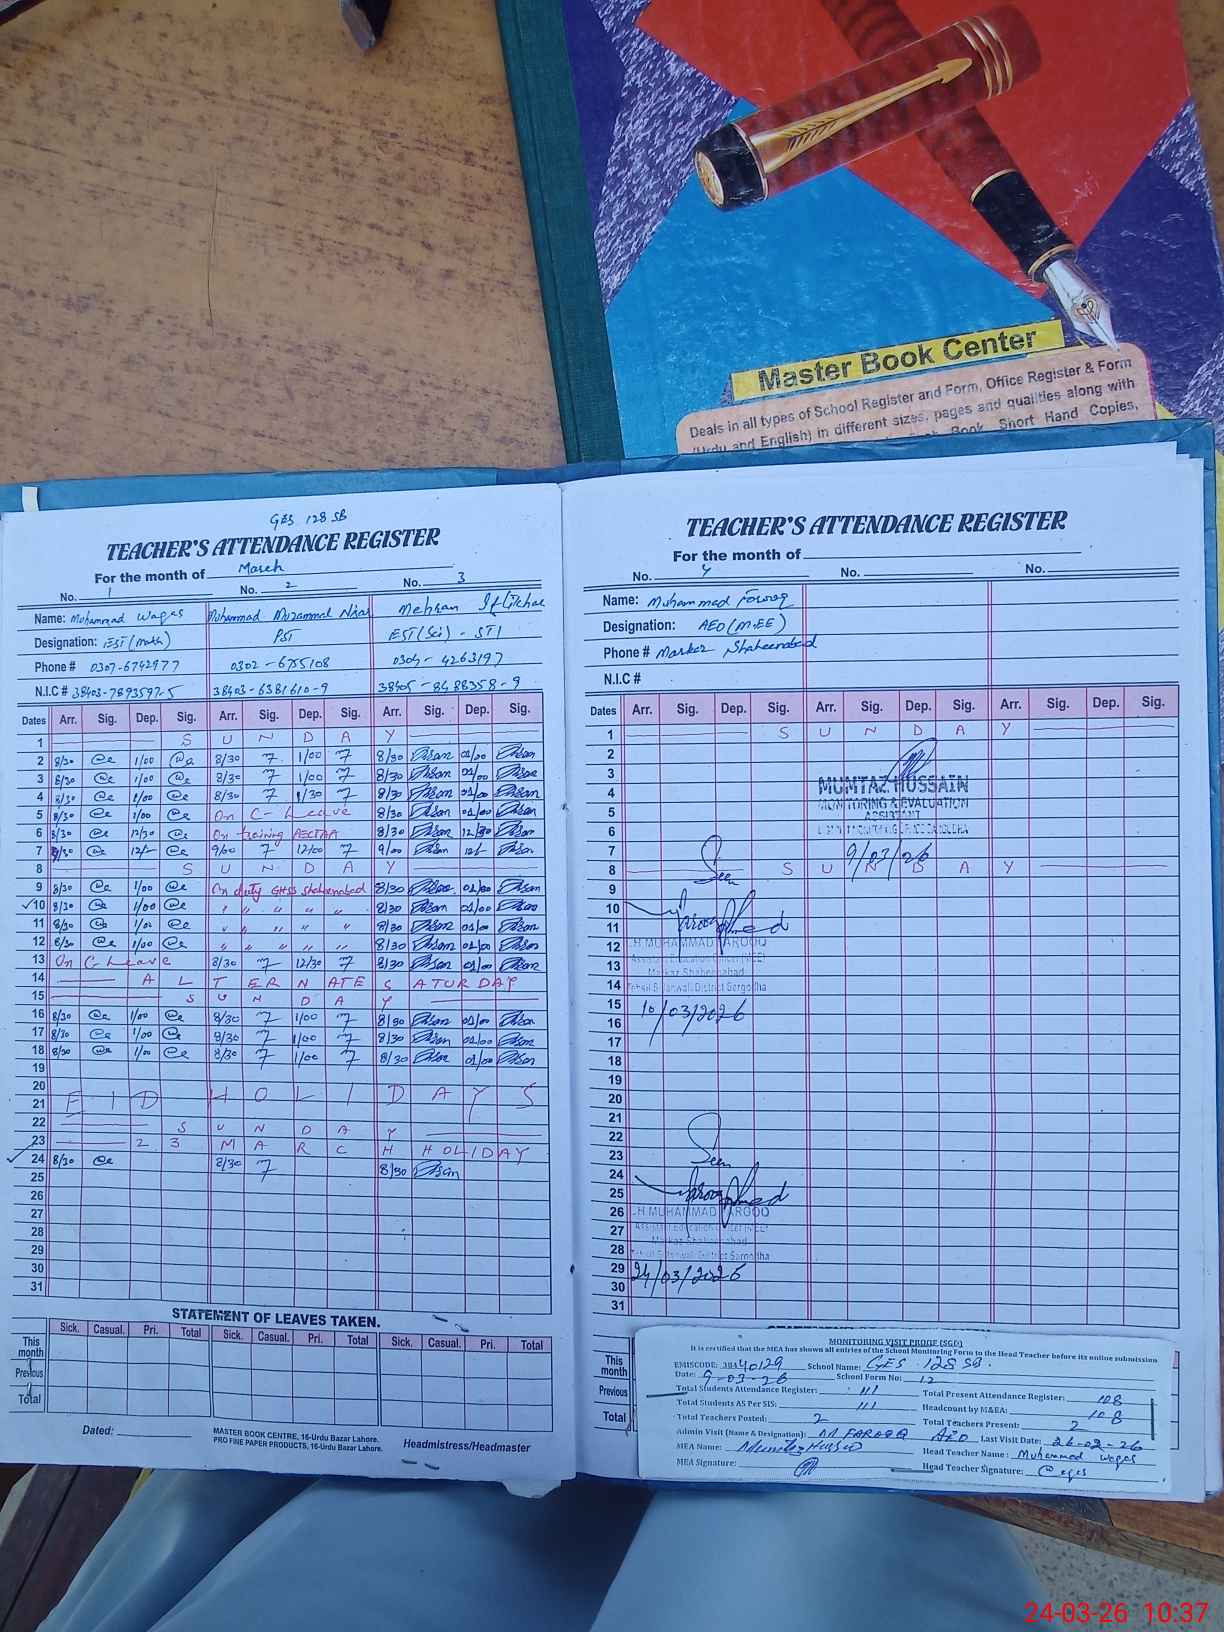 Master Book Center
Deals in all types of School Register and Form, Office Register & Form
(Urdu and English) in different sizes, pages and qualities along with
Book, Short Hand Copies,
GES 128 SB
TEACHER'S ATTENDANCE REGISTER
For the month of March
No. 1 No. 2 No. 3
Name: Mohammad Waqas Muhammad Muzammal Nisar Mehran Iftikhar
Designation: EST (Math) PST EST (Sci) - STI
Phone # 0307-6742977 0302-6755108 0304-4263197
N.I.C # 38403-7893597-5 38403-6381610-9 38405-8488358-9
Dates Arr. Sig. Dep. Sig. Arr. Sig. Dep. Sig. Arr. Sig. Dep. Sig.
1 S U N D A Y
2 8/30 1/00 8/30 1/00 8/30 01/00
3 8/30 1/00 8/30 1/00 8/30 01/00
4 8/30 1/00 8/30 1/30 8/30 01/00
5 8/30 1/00 On C- Leave 8/30 01/00
6 8/30 12/30 On training PECTAA 8/30 12/30
7 12/- 9/00 12/00 9/00 12/-
8 S U N D A Y
9 8/30 1/00 On duty GHSS Shaheenabad 8/30 01/00
10 8/30 1/00 " " " " 8/30 01/00
11 8/30 1/00 " " " " 8/30 01/00
12 8/30 1/00 " " " " 8/30 01/00
13 On C-Leave 8/30 12/30 8/30 01/00
14 A L T E R N A T E S A T U R D A Y
15 S U N D A Y
16 8/30 1/00 8/30 1/00 8/30 01/00
17 8/30 1/00 8/30 1/00 8/30 01/00
18 8/30 1/00 8/30 1/00 8/30 01/00
19
20
21 E I D H O L I D A Y S
22 S U N D A Y
23 2 3 M A R C H H O L I D A Y
24 8/30 8/30 8/30
25
26
27
28
29
30
31
STATEMENT OF LEAVES TAKEN.
Sick. Casual. Pri. Total Sick. Casual. Pri. Total Sick. Casual. Pri. Total
This month
Previous
Total
Dated:
MASTER BOOK CENTRE, 16-Urdu Bazar Lahore.
PRO FINE PAPER PRODUCTS, 16-Urdu Bazar Lahore.
Headmistress/Headmaster
TEACHER'S ATTENDANCE REGISTER
For the month of
No. 4 No. No.
Name: Muhammad Farooq
Designation: AEO (M-EE)
Phone # Markaz Shaheenabad
N.I.C #
Dates Arr. Sig. Dep. Sig. Arr. Sig. Dep. Sig. Arr. Sig. Dep. Sig.
1 S U N D A Y
2
3
4 MUMTAZ HUSSAIN
5 MONITORING & EVALUATION
ASSISTANT
6
7 9/03/26
8 Seen S U N D A Y
9
10
11
12 CH MUHAMMAD FAROOQ
13 Assistant Education Officer (M-EE)
Markaz Shaheenabad
14 Tehsil Sillanwali District Sargodha
15 10/03/2026
16
17
18
19
20
21
22
23 Seen
24
25
26 CH MUHAMMAD FAROOQ
27 Assistant Education Officer (M-EE)
Markaz Shaheenabad
28 Tehsil Sillanwali District Sargodha
29 24/03/2026
30
31
This month
Previous
Total
MONITORING VISIT PROOF (SGD)
It is certified that the MEA has shown all entries of the School Monitoring Form to the Head Teacher before its online submission
EMISCODE: 38440129 School Name: GES 128 SB.
Date: 9-03-26 School Form No.: 12
Total Students Attendance Register: 111 Total Present Attendance Register: 108
Total Students AS Per SIS: 111 Headcount by M&EA: 108
Total Teachers Posted: 2 Total Teachers Present: 2
Admin Visit (Name & Designation): M FAROOQ AEO Last Visit Date: 26-02-26
MEA Name: Mumtaz Hussain Head Teacher Name: Muhammad Waqas
MEA Signature: Head Teacher Signature: Waqas
24-03-26 10:37